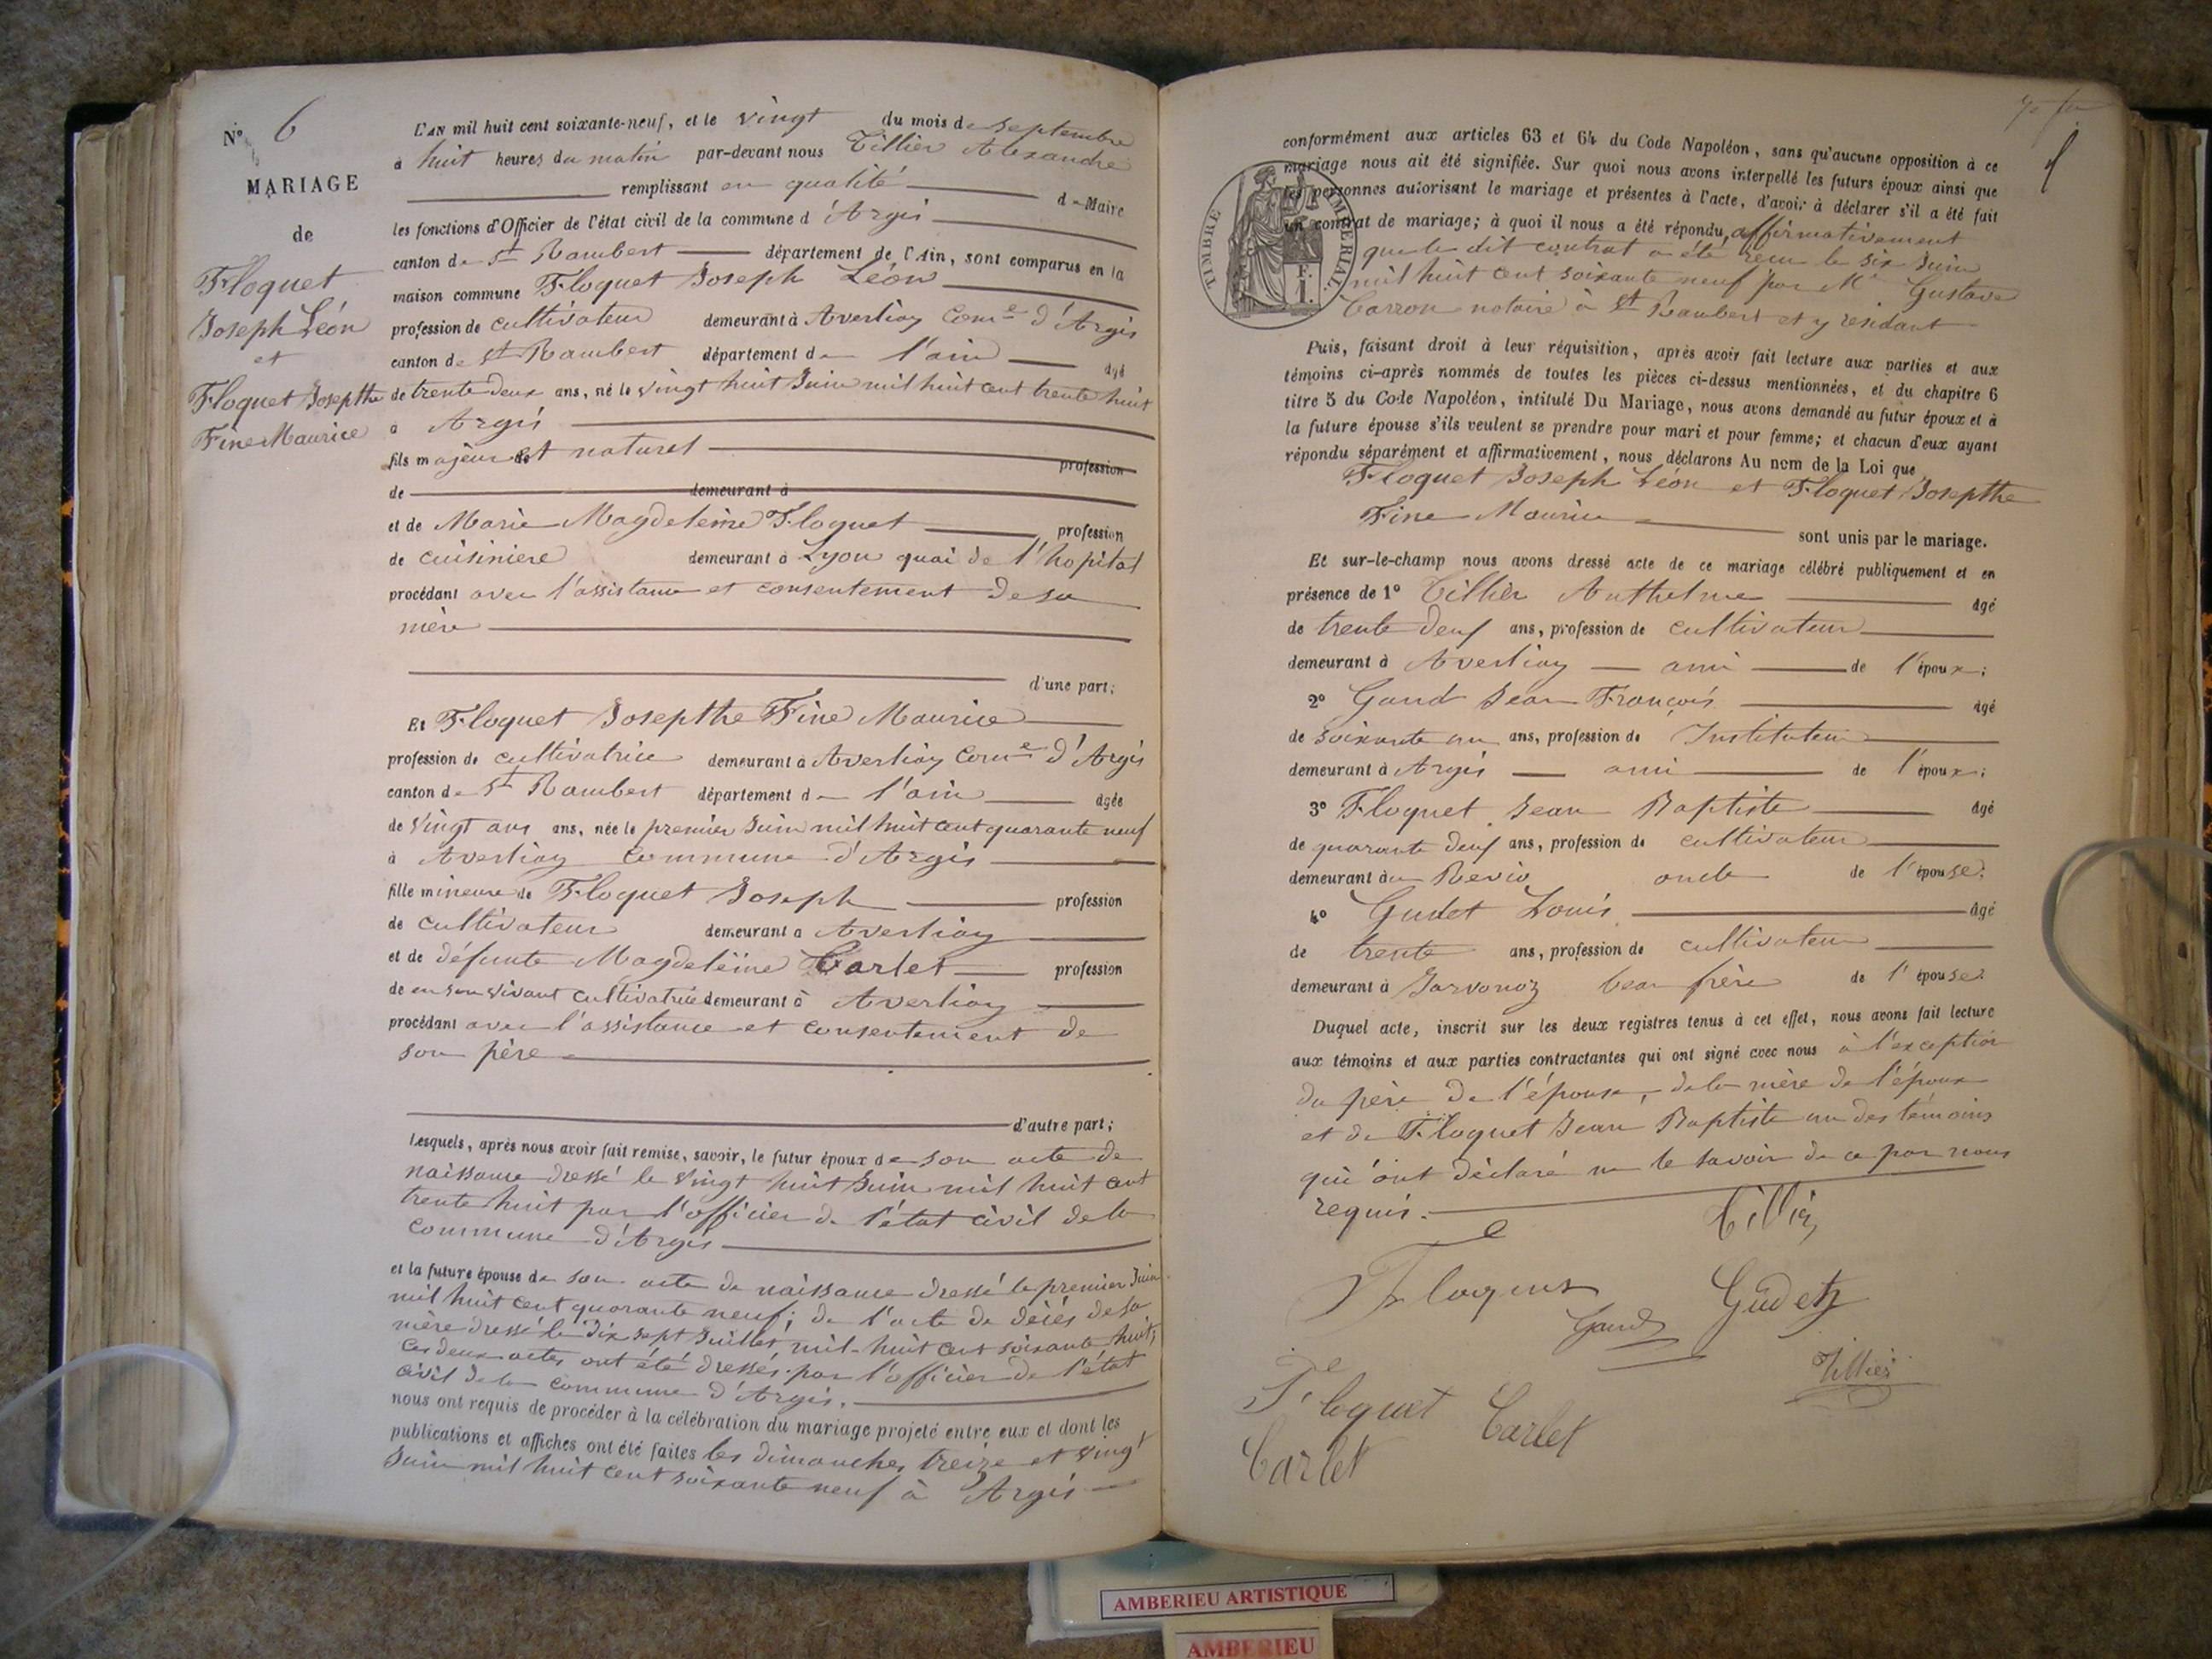 N° 6
MARIAGE
de
Floquet
Joseph Léon
et
Floquet Josepthe
Fine Maurice
L'AN mil huit cent soixante-neuf, et le vingt du mois de septembre
à huit heures du matin par-devant nous Tillier Alexandre
remplissant en qualité de Maire
les fonctions d'Officier de l'état civil de la commune d'Argis
canton de St Rambert département de l'Ain, sont comparus en la
maison commune Floquet Joseph Léon
profession de cultivateur demeurant à Averliaz Come d'Argis
canton de St Rambert département de l'ain âgé
de trente deux ans, né le vingt huit Juin mil huit cent trente huit
à Argis
fils majeur et naturel profession
de demeurant à
et de Marie Magdeleine Floquet profession
de cuisiniere demeurant à Lyon quai de l'hopital
procédant avec l'assistance et consentement de sa
mère
d'une part;
Et Floquet Josepthe Fine Maurice
profession de cultivatrice demeurant à Averliaz Come d'Argis
canton de St Rambert département de l'ain âgée
de vingt ans ans, née le premier Juin mil huit cent quarante neuf
à Averliaz commune d'Argis
fille mineure de Floquet Joseph profession
de cultivateur demeurant à Averliaz
et de défunte Magdeleine Carlet profession
de en son vivant cultivatrice demeurant à Averliaz
procédant avec l'assistance et consentement de
son père
d'autre part;
Lesquels, après nous avoir fait remise, savoir, le futur époux de son acte de
naissance dressé le vingt huit Juin mil huit cent
trente huit par l'officier de l'état civil de la
commune d'Argis
et la future épouse de son acte de naissance dressé le premier Juin
mil huit cent quarante neuf; de l'acte de décès de sa
mère dressé le dix sept Juillet mil huit cent soixante huit;
ces deux actes ont été dressés par l'officier de l'état
civil de la commune d'Argis.
nous ont requis de procéder à la célébration du mariage projeté entre eux et dont les
publications et affiches ont été faites les dimanches treize et vingt
Juin mil huit cent soixante neuf à Argis
conformément aux articles 63 et 64 du Code Napoléon, sans qu'aucune opposition à ce
mariage nous ait été signifiée. Sur quoi nous avons interpellé les futurs époux ainsi que
les personnes autorisant le mariage et présentes à l'acte, d'avoir à déclarer s'il a été fait
un contrat de mariage; à quoi il nous a été répondu affirmativement
que le dit contrat a été reçu le six Juin
mil huit cent soixante neuf par Me Gustave
Carron notaire à St Rambert et y residant
TIMBRE IMPERIAL.
F.
I.
Puis, faisant droit à leur réquisition, après avoir fait lecture aux parties et aux
témoins ci-après nommés de toutes les pièces ci-dessus mentionnées, et du chapitre 6
titre 5 du Code Napoléon, intitulé Du Mariage, nous avons demandé au futur époux et à
la future épouse s'ils veulent se prendre pour mari et pour femme; et chacun d'eux ayant
répondu séparément et affirmativement, nous déclarons Au nom de la Loi que
Floquet Joseph Léon et Floquet Josepthe
Fine Maurice
sont unis par le mariage.
Et sur-le-champ nous avons dressé acte de ce mariage célébré publiquement et en
présence de 1° Tillier Anthelme âgé
de trente deuf ans, profession de cultivateur
demeurant à Averliaz ami de l'époux;
2° Gand Jean François âgé
de soixante un ans, profession de Instituteur
demeurant à Argis ami de l'époux;
3° Floquet Jean Baptiste âgé
de quarante deuf ans, profession de cultivateur
demeurant au oncle de l'épouse;
4° Gudet Louis âgé
de trente ans, profession de cultivateur
demeurant à beau frère de l'épouse.
Duquel acte, inscrit sur les deux registres tenus à cet effet, nous avons fait lecture
aux témoins et aux parties contractantes qui ont signé avec nous à l'exception
du père de l'épouse, de la mère de l'époux
et de Floquet Jean Baptiste un des témoins
qui ont déclaré ne le savoir de ce par nous
requis.
Tillier
Gand
Gudet
Tillier
Floquet
Carlet
Carlet
AMBERIEU ARTISTIQUE
AMBERIEU